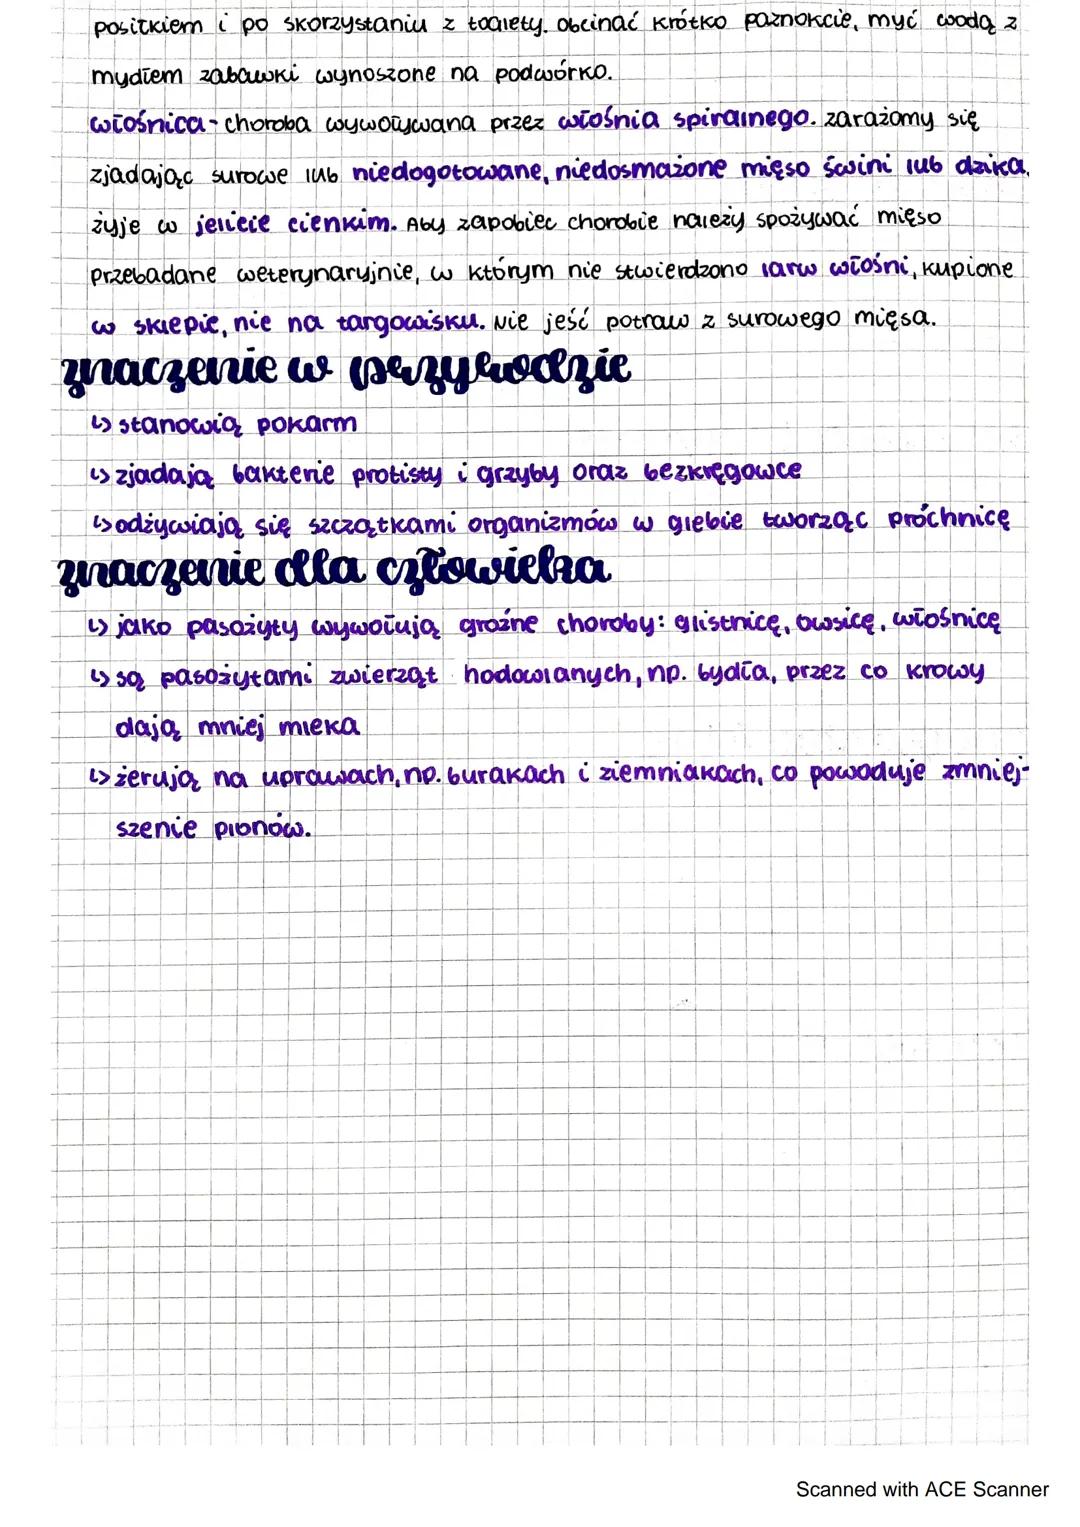 positkiem i po skorzystaniu z toalety. obcinać krótko paznokcie, myć wodą z
mydłem zabawki wynoszone na podwórko.
włośnica - choroba wywoływana przez włośnia spiralnego. zarażamy się
zjadając surowe lub niedogotowane, niedosmażone mięso świni lub dzika.
żyje w jelicie cienkim. Aby zapobiec chorobie należy spożywać mięso
przebadane weterynaryjnie, w którym nie stwierdzono larw włośni, kupione
w sklepie, nie na targowisku. Nie jeść potraw z surowego mięsa.
znaczenie w przyrodzie
↳ stanowią pokarm
↳ zjadają bakterie protisty i grzyby oraz bezkręgowce
↳ odżywiają się szczątkami organizmów w glebie tworząc próchnicę
znaczenie dla człowieka
↳ jako pasożyty wywołują groźne choroby: glistnicę, owsicę, włośnicę
↳ są pasożytami zwierząt hodowlanych, np. bydła, przez co krowy
dają mniej mleka
↳ żerują na uprawach, np. burakach i ziemniakach, co powoduje zmniej-
szenie plonów.
Scanned with ACE Scanner